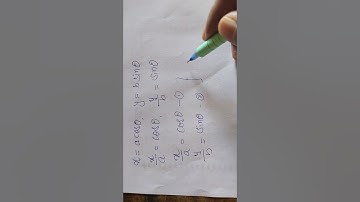 x = a cosθ, y = b sinθ
x/a = cosθ, y/b = sinθ
x/a = cosθ - ①
y/b = sinθ - ②